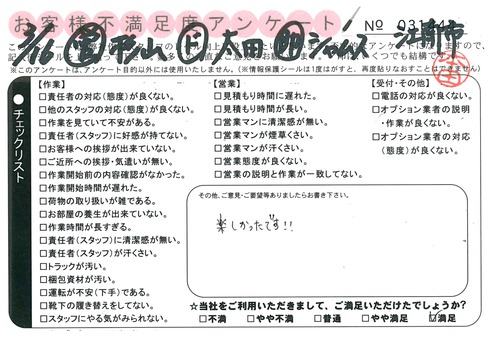 お客様不満足度アンケート
№ 031
3/16 杉山 太田 江南市
※このアンケートは、アンケート目的以外には使用いたしません。(※情報保護シールは1度はがすと、再度貼りなおすことはできません)
チェックリスト
【作業】
□責任者の対応(態度)が良くない。
□他のスタッフの対応(態度)が良くない。
□作業を見ていて不安がある。
□責任者(スタッフ)に好感が持てない。
□お客様へ挨拶が出来ていない。
□ご近所への挨拶・気遣いが無い。
□作業開始前の内容確認がなかった。
□作業開始時間が遅れた。
□荷物の取り扱いが雑である。
□お部屋の養生が出来ていない。
□作業時間が長すぎる。
□責任者(スタッフ)に清潔感が無い。
□責任者(スタッフ)が汗くさい。
□トラックが汚い。
□梱包資材が汚い。
□運転が不安(下手)である。
□靴下の履き替えをしてない。
□スタッフにやる気がみられない。
【営業】
□見積もり時間に遅れた。
□見積もり時間が長い。
□営業マンに清潔感が無い。
□営業マンが煙草くさい。
□営業マンが汗くさい。
□営業態度が良くない。
□営業の説明と作業が一致してない。
【受付・その他】
□電話の対応が良くない。
□オプション業者の説明
・作業が良くない。
□オプション業者の対応
(態度)が良くない。
その他、ご意見・ご要望等ありましたらお書き下さい。
楽しかったです!!
☆当社をご利用いただきまして、ご満足いただけたでしょうか?
□不満 □やや不満 □普通 □やや満足 ☑満足